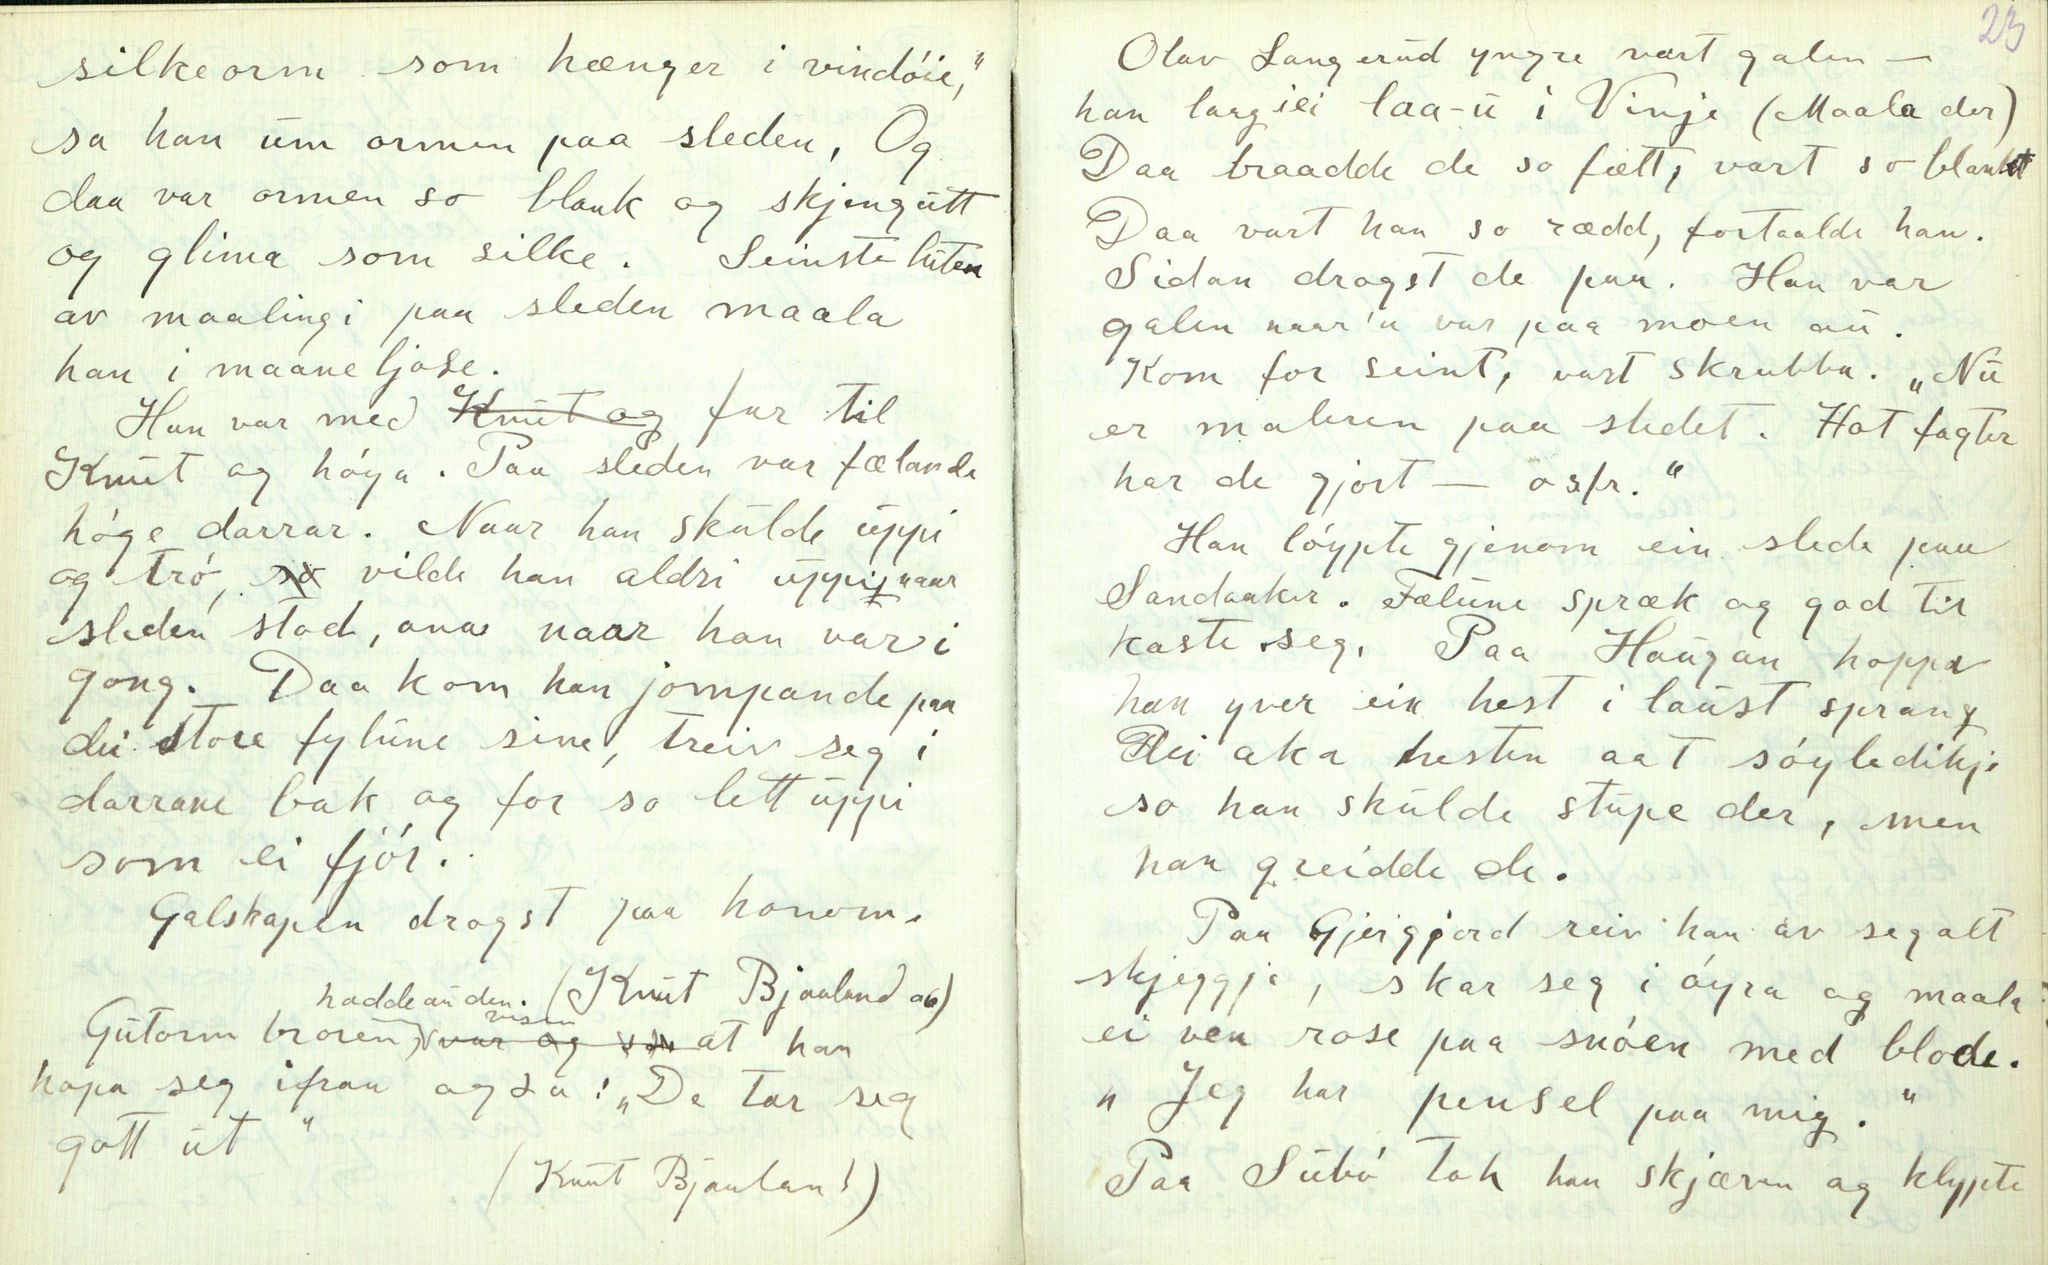 silkeorm som hænger i vindöie,"
sa han um ormen paa sleden, Og
daa var ormen so blank og skjengutt
og glima som silke. Seinste luten
av maalingi paa sleden maala
han i maaneljose.
Han var med Knut og far til
Knut og höya. Paa sleden var fælande
höge darrar. Naar han skulde uppi
og trö, so vilde han aldri uppi, naar
sleden stod, ana naar han var i
gong. Daa kom han jompande paa
dei store fylune sine, treiv seg i
darrane bak og for so lett uppi
som ei fjör.
Galskapen drogst paa honom.
haddeanden. (Knut Bjaaland og)
Gutorm broren, visen var og sa at han
hopa seg ifraa og sa: „De tar seg
gott ut"
(Knut Bjaaland)
23
Olav Langerud yngre vart galen —
han laag i ei laa-u i Vinje (Maala der)
Daa braadde de so fætt, vart so blankt
Daa vart han so rædd, fortaalde han.
Sidan drogst de paa. Han var
galen naar'n var paa moen au.
Kom for seint, vart skrubba. „Nu
er maleren paa stedet. Hot fagter
har de gjort — osfr."
Han löypte gjenom ein slede paa
Sandaaker. Fælune spræk og god til
kaste seg. Paa Haugan hoppa
han yver ein hest i laust sprang
Dei aka hesten aat söyledikje
so han skulde stupe der, men
han greidde de.
Paa Gjeirgjord reiv han av seg alt
skjeggje, skar seg i öyra og maala
ei ven rose paa snöen med blode.
„Jeg har pensel paa mig."
Paa Subö tok han skjæren og klypte